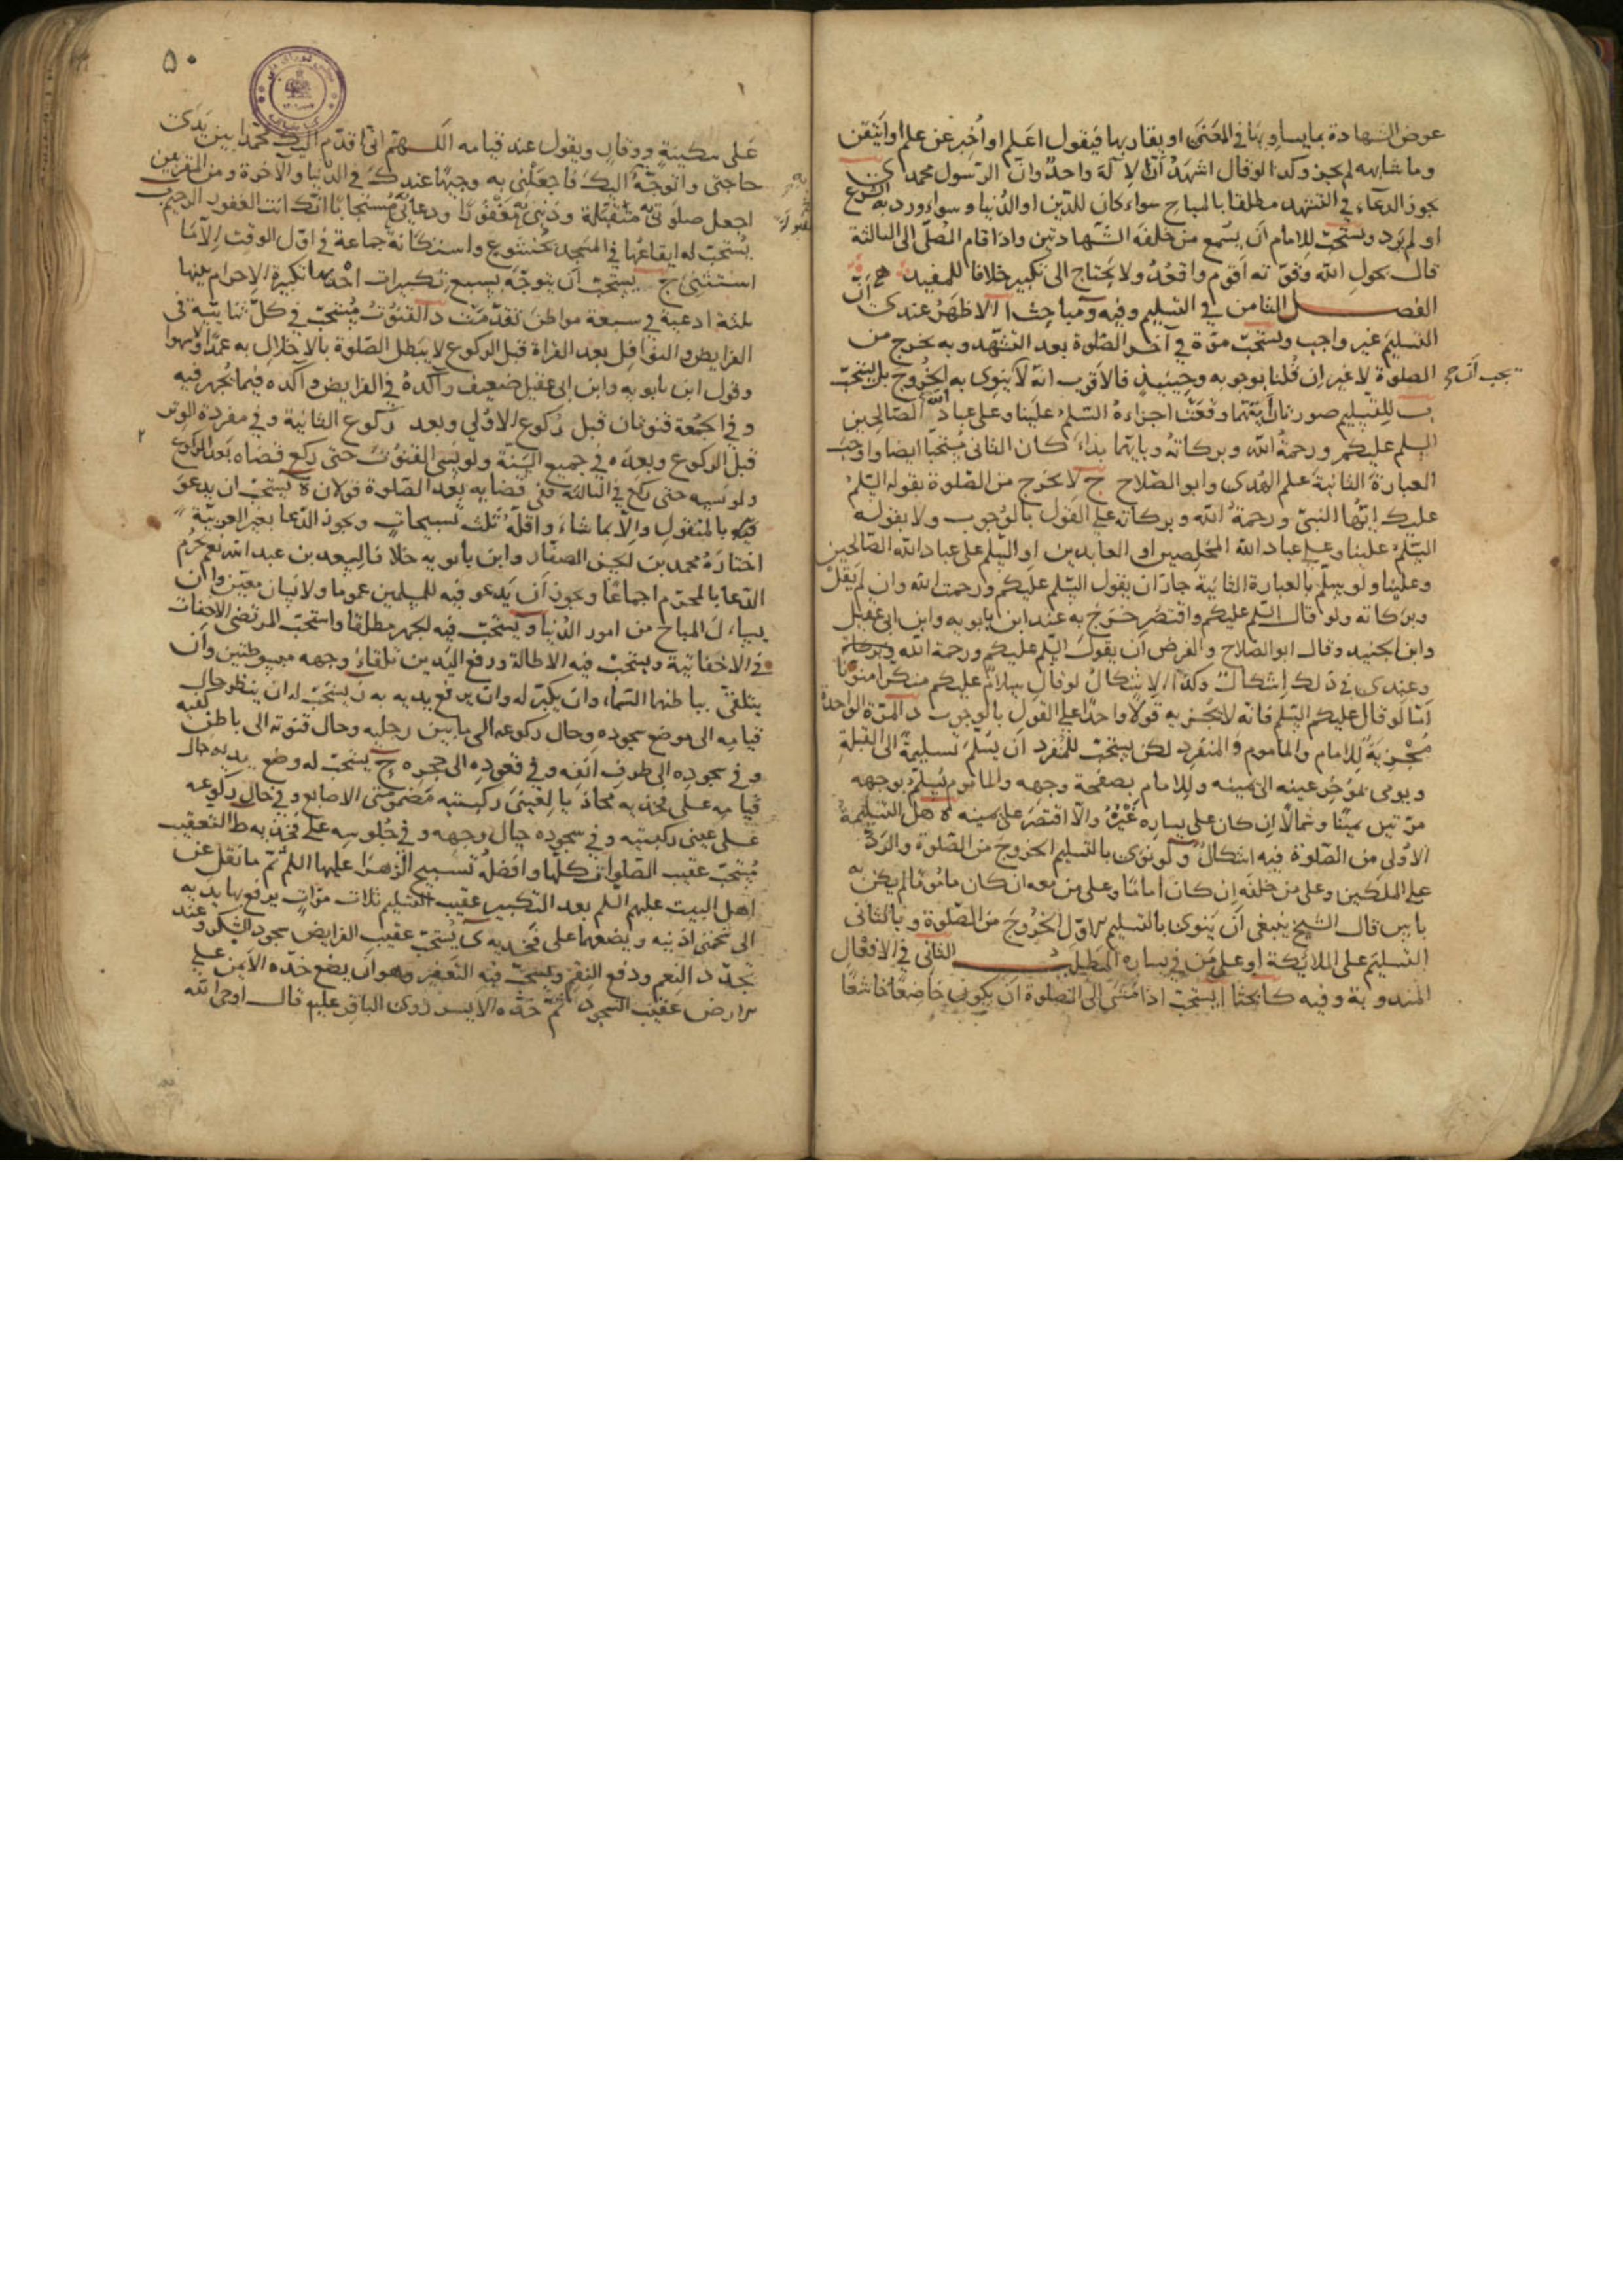 عوض الشهادة بما يساويها في المعنى او يقاربها فيقول اعلم او اخبر عن علم او اتيقن
وما شابهه لم يجز وكذا لو قال اشهد ان لا اله واحد وان الرسول محمد
يجوز الدعاء في التشهد مطلقا بالمباح سواء كان للدين او الدنيا وسواء ورد به الشرع
او لم يرد ويستحب للامام ان يسمع من خلفه الشهادتين واذا قام المصلى الى الثالثة
قال بحول الله وقوته اقوم واقعد ولا يحتاج الى تكبير خلافا للمفيد
الفصل الثامن في التسليم وفيه مباحث ا الاظهر عندى ان
التسليم غير واجب ويستحب مرة في آخر الصلوة بعد التشهد وبه يخرج من
الصلوة لا غير ان قلنا بوجوبه وحينئذ فالاقرب انه لا ينوى به الخروج بل يستحب
ب للتسليم صورتان بايتهما وقعت اجزاءه السلم علينا وعلى عباد الله الصالحين
السلم عليكم ورحمة الله وبركاته وبايتهما بداء كان الثاني مستحبا ايضا واوجب
العبارة الثانية علم الهدى وابو الصلاح ج لا يخرج من الصلوة بقوله السلم
عليك ايها النبي ورحمة الله وبركاته على القول بالوجوب ولا بقوله
السلم علينا وعلى عباد الله المخلصين او العابدين او السلم على عباد الله الصالحين
وعلينا ولو سلم بالعبارة الثانية جاز ان يقول السلم عليكم ورحمت الله وان لم يقل
وبركاته ولو قال السلم عليكم واقتصر خرج به عند ابن بابويه وابن ابي عقيل
وابن الجنيد وقال ابو الصلاح والفرض ان يقول السلم عليكم ورحمة الله وبركاته
وعندى في ذلك اشكال وكذا الاشكال لو قال سلام عليكم منكرا منونا
اما لو قال عليكم السلم فانه لا يجزيه قولا واحدا على القول بالوجوب د المرة الواحدة
مجزية للامام والماموم والمنفرد لكن يستحب للمنفرد ان يسلم تسليمة الى القبلة
ويومى بمؤخر عينه الى يمينه وللامام بصفحة وجهه والماموم يسلم بوجهه
مرتين يمينا وشمالا ان كان على يساره غيره والا اقتصر على يمينه ه هل التسليمة
الاولى من الصلوة فيه اشكال و لو نوى بالتسليم الخروج من الصلوة والرد
على الملكين وعلى من خلفه ان كان اماما وعلى من معه ان كان ماموما لم يكن به
باس قال الشيخ ينبغى ان ينوى بالتسليم الاول الخروج من الصلوة وبالثانى
التسليم على الملائكة او على من في يساره المطلب الثاني في الافعال
المندوبة وفيه يا بحثا ا يستحب اذا مشى الى الصلوة ان يكون خاضعا خاشعا
يجب ان يخرج
٥٠
على سكينة ووقار ويقول عند قيامه اللهم انى اقدم اليك محمدا بين يدى
حاجتى واتوجه اليك فاجعلنى به وجيها عندك في الدنيا والآخرة ومن المقربين
اجعل صلوتى به متقبلة وذنبى به مغفورا ودعائى مستجابا انك انت الغفور الرحيم
يستحب له ايقاعها في المسجد بخشوع واستكانة جماعة في اول الوقت الا ما
استثنى ج يستحب ان يتوجه بسبع تكبيرات احديها تكبيرة الاحرام بينها
ثلثة ادعية في سبعة مواطن تقدمت د القنوت مستحب في كل ثنائية في
الفرايض والنوافل بعد القراة قبل الركوع لا يبطل الصلوة بالاخلال به عمدا او سهوا
وقول ابن بابويه وابن ابي عقيل ضعيف وآكده في الفرايض وآكده فيما يجهر فيه
وفي الجمعة قنوتان قبل ركوع الاولى وبعد ركوع الثانية وفي مفردة الوتر
قبل الركوع وبعده في جميع السنة ولو نسى القنوت حتى ركع قضاه بعد الركوع
ولو نسيه حتى ركع في الثالثة ففى قضايه بعد الصلوة قولان ه يستحب ان يدعو
فيه بالمنقول والا بما شاء واقله ثلث تسبيحات ويجوز الدعا بغير العربية
اختاره محمد بن الحسن الصفار وابن بابويه خلافا لسعد بن عبد الله نعم يحرم
الدعا بالمحرم اجماعا ويجوز ان يدعو فيه للمسلمين عموما ولانسان معين وان
يساءل المباح من امور الدنيا و يستحب فيه الجهر مطلقا واستحب المرتضى الاخفات
في الاخفاتية ويستحب فيه الاطالة ورفع اليدين تلقاء وجهه مبسوطتين وان
يتلقى بباطنهما السماء وان يكبر له وان يرفع يديه به ز يستحب له ان ينظر حال
قيامه الى موضع سجوده وحال ركوعه الى ما بين رجليه وحال قنوته الى باطن كفيه
وفي سجوده الى طرف انفه وفي قعوده الى حجره ح يستحب له وضع يديه حال
قيامه على فخذيه محاذيا لعينى ركبتيه مضمومتى الاصابع وفي حال ركوعه
على عينى ركبتيه وفي سجوده حيال وجهه وفي جلوسه على فخذيه ط التعقيب
مستحب عقيب الصلوات كلها وافضله تسبيح الزهرا عليها السلم ثم ما نقل عن
اهل البيت عليهم السلم بعد التكبير عقيب التسليم ثلاث مرات يرفع بها يديه
الى شحمتى اذنيه ويضعهما على فخذيه ى يستحب عقيب الفرايض سجود الشكر وعند
تجدد النعم ودفع النقم ويستحب فيه التعفير وهو ان يضع خده الايمن على
الارض عقيب السجود ثم خده الايسر روى الباقر عليه قال اوحى الله